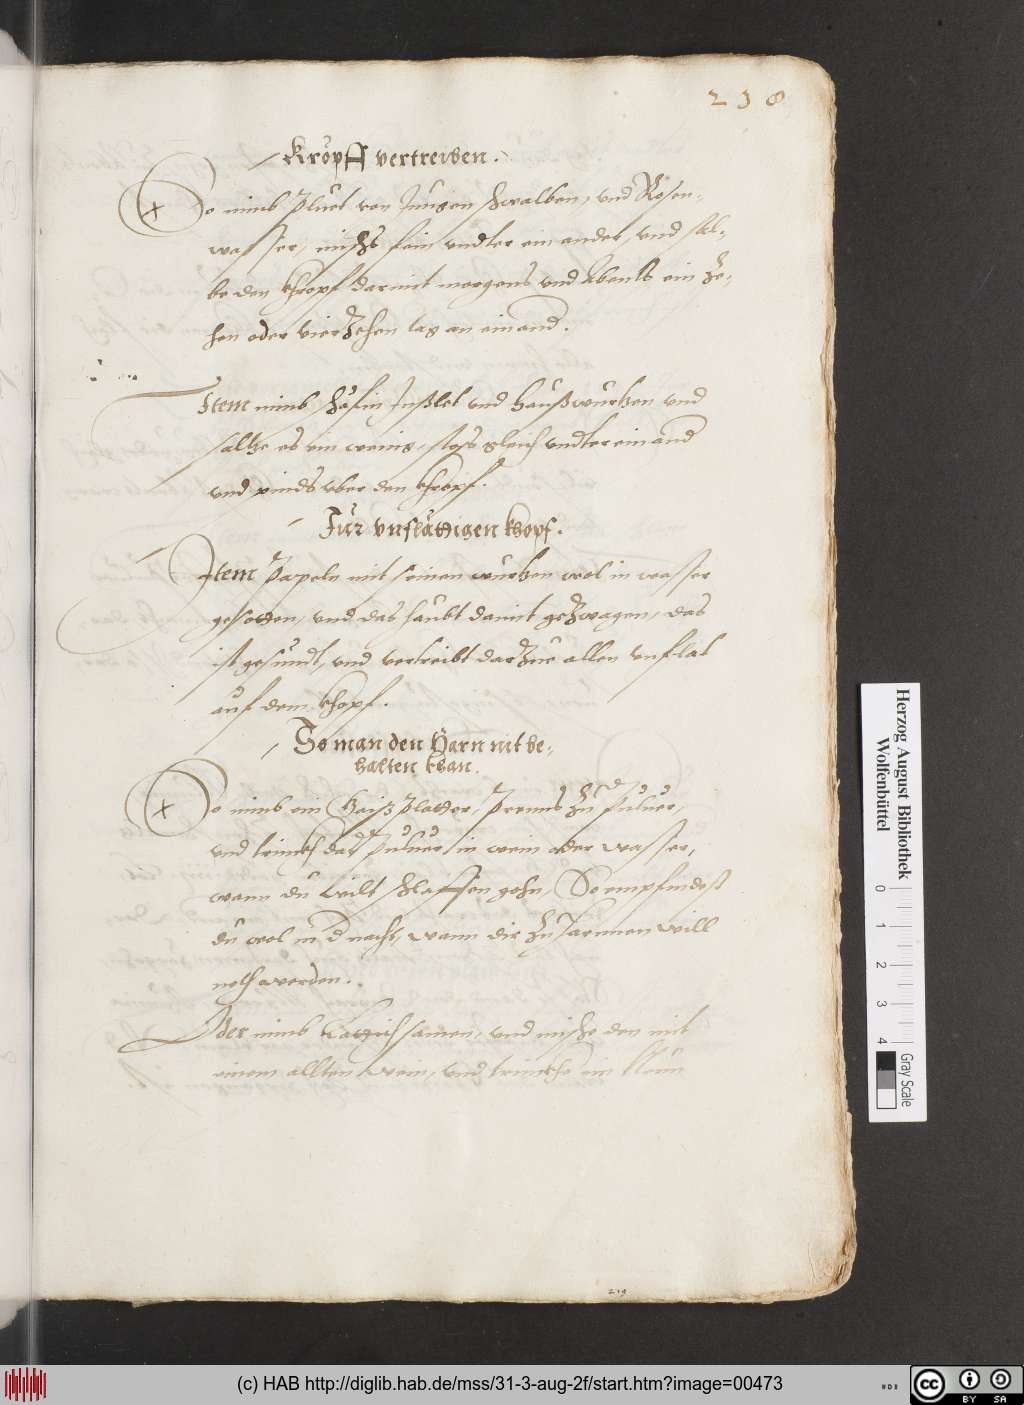 238
Kröpff vertreiben.
So nimb Pluet von Jungen Schwalben, und Rosen-
wasser, mischs fein undter einander, und sal-
be den Khropf darmit morgens und Abents ein ze-
hen oder vierzehen tag an einand.
Item nimb schäfin Inßlet und haußwurtzen und
saltze es ein wenig, stoss gleich undtereinand
und pinds uber den Khropf.
Für unflättigen khopf.
Item Papeln mit seinen wurtzen wol in wasser
gesotten, und das haubt damit gezwagen, das
ist gesundt, und vertreibt darzue allen unflat
auf dem khopf.
So man den Harn nit be-
halten khan.
So nimb ein Gaiß platter, Prenns zu Puluer,
und trinckh das Puluer in wein oder wasser,
wann du wilt schlaffen gehn, So empfindest
du wol in d nacht, wann dir zu harnnen will
noth werden.
Oder nimb Lattich samen, und mische den mit
einem allten wein, und trinckhe ein klein
219
Herzog August Bibliothek
Wolfenbüttel
0 1 2 3 4
Gray Scale
(c) HAB http://diglib.hab.de/mss/31-3-aug-2f/start.htm?image=00473
cc BY SA